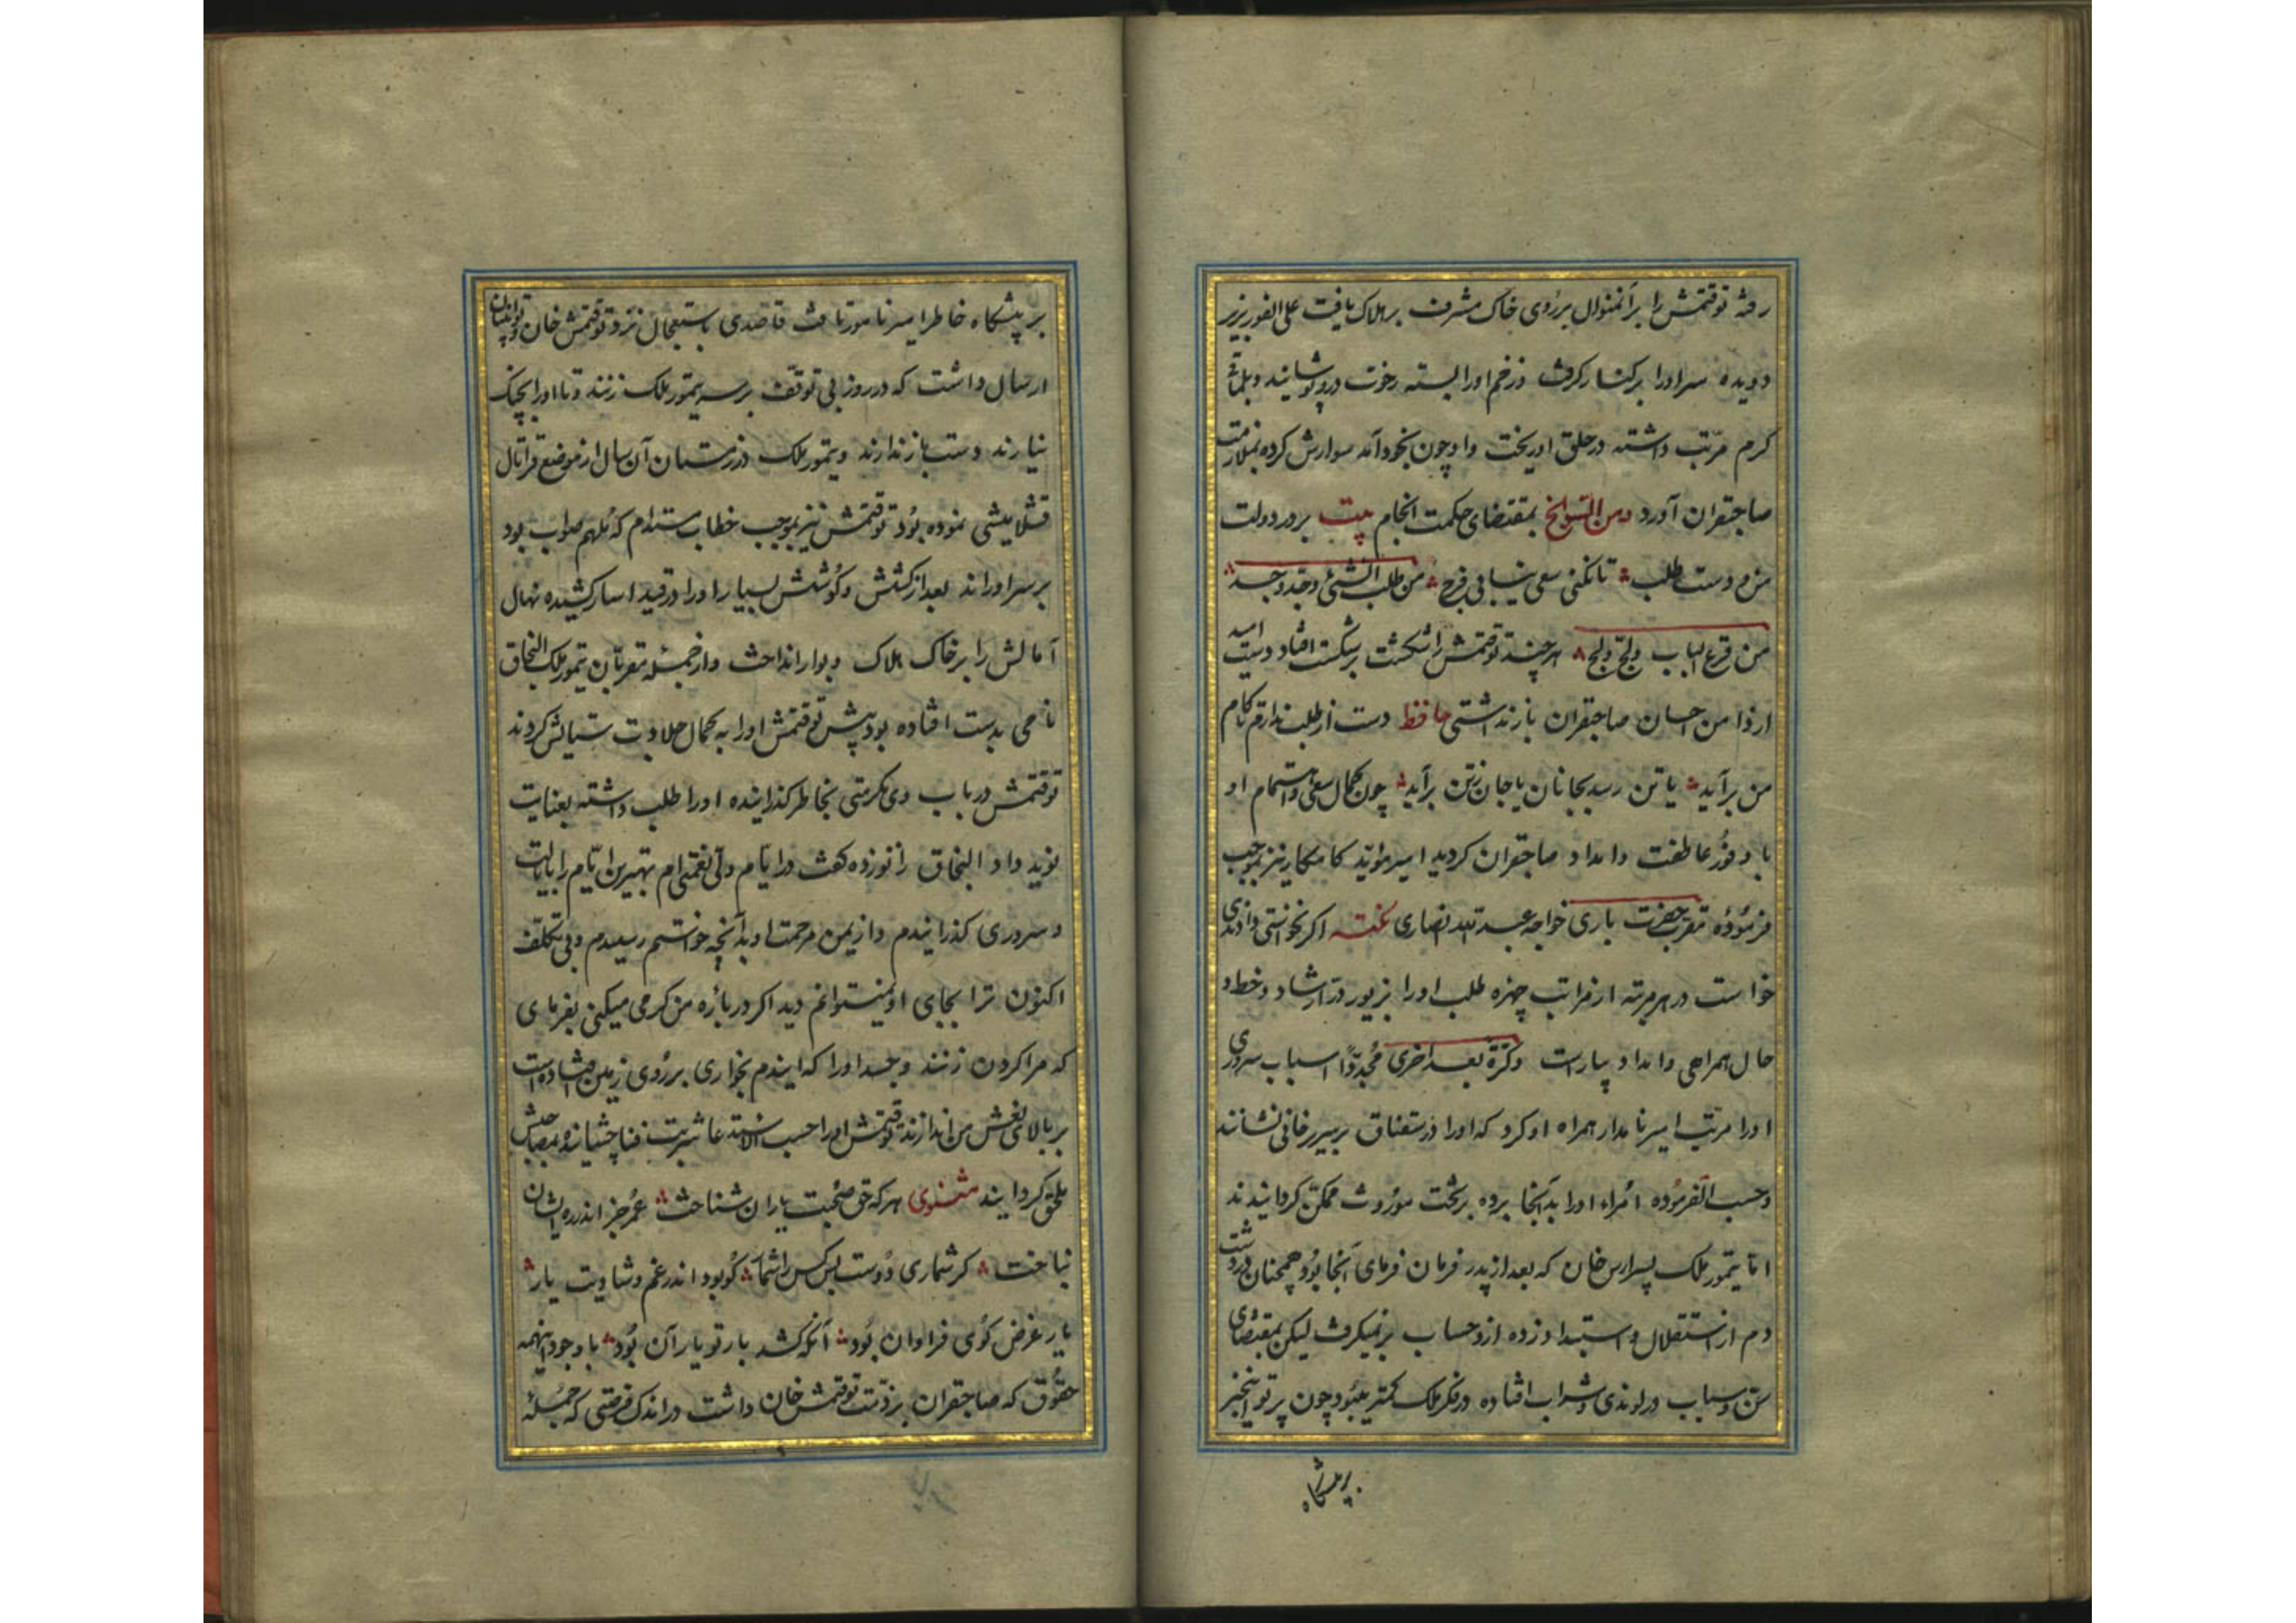 رفته توقتمش را برانمنوال بر روی خاک مشرف بر هلاک یافت علی الفور بزیر
دویده سر او را بر کنار گرفت و زخم او را بسته رخوت در و پوشانید و بلماق
گرم مرتب داشته در حلق او ریخت و او چون بخود آمد سوارش کرده بملازمت
صاحبقران آورد ومن السوانح بمقتضای حکمت انجام بیت بر در دولت
مزه دست طلب تا نکنی سعی نیابی فرج من طلب الشئ وجد وجد
من قرع الباب ولج ولج هر چند توقتمش را شکست بر شکست افتاد دست امید
از دامن احسان صاحبقران باز نداشتی حافظ دست از طلب ندارم تا کام
من برآید یا تن رسد بجانان یا جان ز تن برآید چون کمال سعی و اهتمام او
با وفور عاطفت و امداد صاحبقران گردید امیر مؤید کامکار نیز بموجب
فرموده مقرب حضرت باری خواجه عبد الله انصاری نخته اگر نخواستی دادندی
خواست در هر مرتبه از مراتب چهره طلب او را بزیور در ارشاد و خط و
خال همراهی و امداد بیاراست وکرة بعد اخری مجددا اسباب سروری
او را مرتب امیر نامدار همراه او کرد که او را در سقناق بر سریر خانی نشانند
وحسب الفرموده امراء او را بدآنجا برده بر تخت موروث ممکن گردانیدند
اما تیمور ملک پسر ارس خان که بعد از پدر فرمان فرمای آنجا بود همچنان در دشت
دم از استقلال و استبداد زده از و حساب بر نمیگرفت لیکن بمقتضای
سن و شباب در لوندی و شراب افتاده در فکر ملک کمتر میبود چون پرتو اینخبر
بر پیشگاه
بر پیشگاه خاطر امیر نامور تافت قاصدی باستعجال نزد توقتمش خان و توابینان
ارسال داشت که در روز بی توقف بر سر تیمور ملک زنند و تا او را بچنگ
نیارند دست باز ندارند و تیمور ملک در زمستان آن سال از موضع قراتال
قشلامیشی نموده بود توقتمش نیز بموجب خطاب مستدام که ملهم صواب بود
بر سر او راند بعد از کشش و کوشش بسیار او را در قید اسار کشیده نهال
آمالش را بر خاک هلاک و بوار انداخت و از جمله مقربان تیمور ملک النجاق
نامی بدست افتاده بود پیش توقتمش او را به کمال جلادت ستایش کردند
توقتمش در باب وی مکرمتی بخاطر گذرانیده او را طلب داشته بعنایت
نوید داد النجاق زانو زده گفت در ایام ولی نعمتی ام بهترین ایام را بایالت
و سروری گذرانیدم و از یمن مرحمت او بدآنچه خواستم رسیدم و بی تکلف
اکنون ترا بجای او نمیتوانم دید اگر در باره من کرمی میکنی بفرمای
که مرا گردون زنند و جسد او را که ایندم بخواری بر روی زمین افتاده است
بر بالای نعش من اندازند توقتمش او را حسب الاستدعا شربت فنا چشانیده بصاحبش
ملحق گردانید مثنوی هر که حق صحبت یاران شناخت عمر جز اندر ره ایشان
نباخت گر شماری دوست بس کس را شمار کو بود اندر غم و شادیت یار
یار غرض گوی فراوان بود آنکه کشد بار تو یار آن بود با وجود اینهمه
حقوق که صاحبقران بر ذمت توقتمش خان داشت در اندک فرصتی که جمله